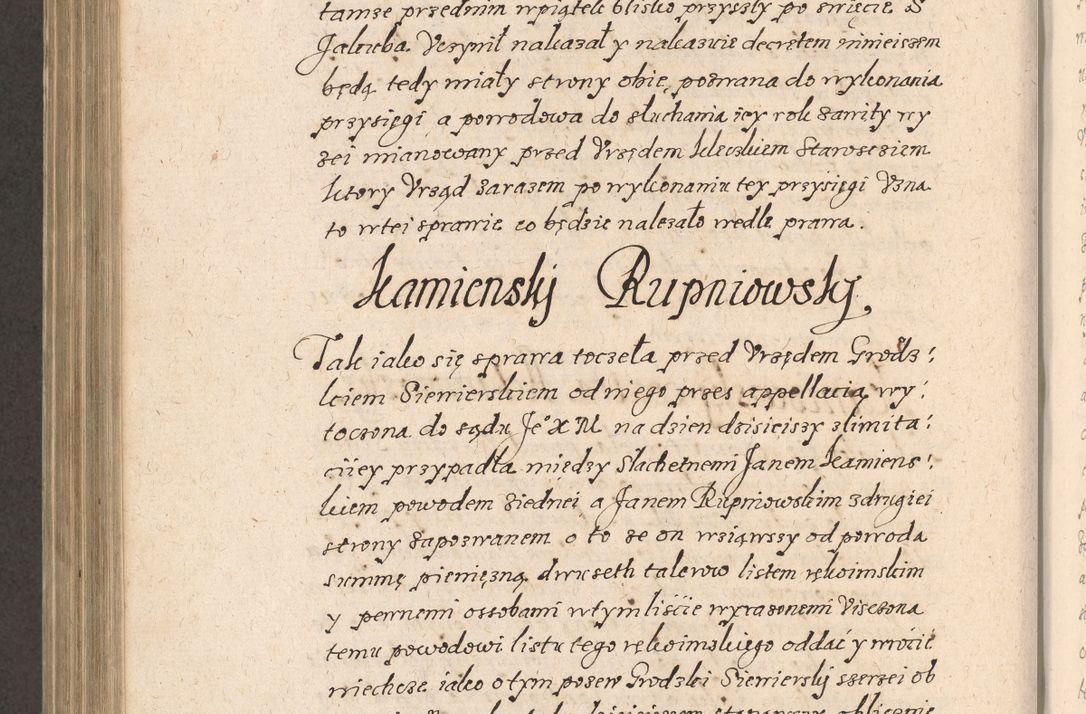 tamze przednim wpiątek blisko przyszły po swięcie S
Jakuba. Uczynił nakazał y nakazuie decretem ninieiszem
będą tedy miały strony obie, pozwana do wykonania
przysięgi a powodowa do słuchania iey rok zawity wy
żei mianowany przed Urzędem kleczkiem Staroseziem
ktory Urząd zarazem po wykonaniu tey przysięgi Uzna
to wtei sprawie co będzie nalezało wedle prawa.
Kamiensky Rupniowsky
Tak iako się sprawa toczeła przed Urzędem Grodz:
kiem Siewierskiem od niego przes appellacią wy:
toczona do sądu Je° X M na dzien dzisieiszy zlimita:
ciiey przypadła między Slachetnemi Janem Kamiens:
kiem powodem ziednei a Janem Rupniowskim zdrugiei
strony zapozwanem o to ze on wziąwszy od powoda
summę pieniężną dwuseth talerow listem rękoimskim
y pewnemi ossobami wtym liście wyrazonemi Uisczona
temu powodowi listu tego rękoimskiego oddać y wrócić
niechcze iako o tym pozew Grodzki Siewiersky szerzei ob